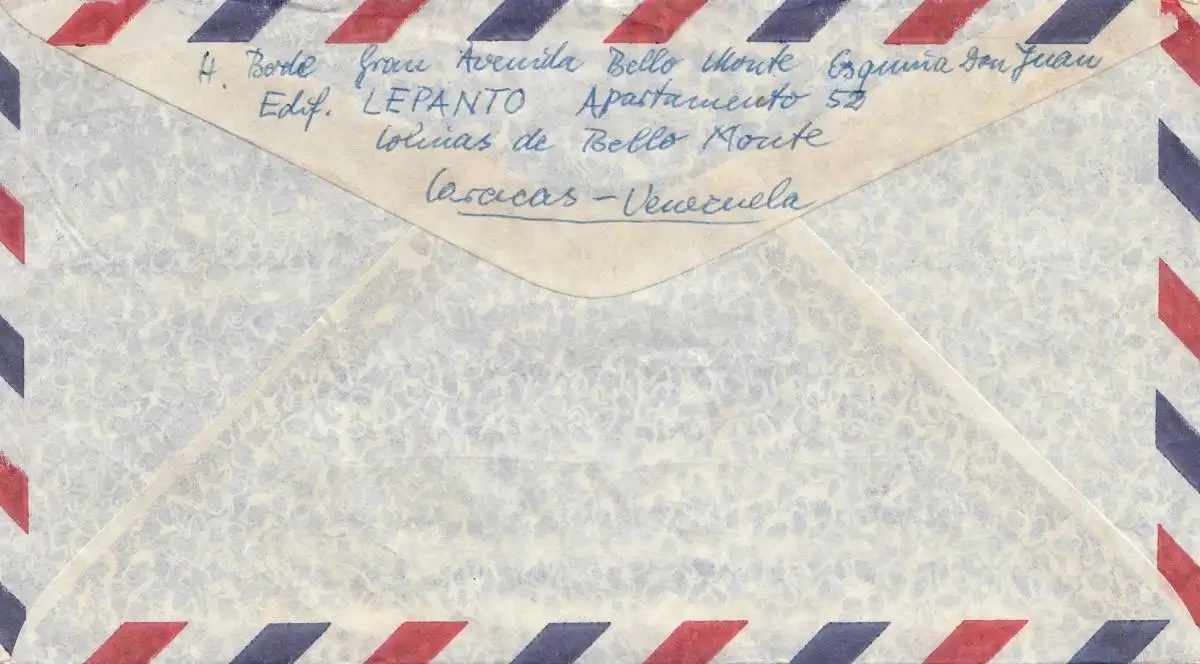 H. Bode Gran Avenida Bello Monte Esquina Don Juan
Edif. LEPANTO Apartamento 52
Colinas de Bello Monte
Caracas - Venezuela